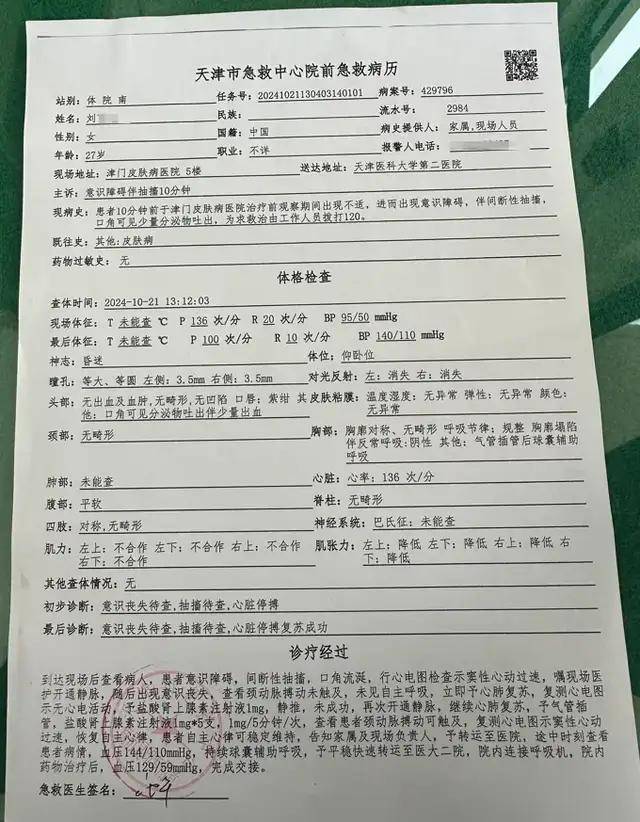 天津市急救中心院前急救病历
站别：体 院 南 任务号：20241021130403140101 病案号：429796
姓名：刘 民族： 流水号： 2984
性别：女 国籍：中国 病史提供人：家属,现场人员
年龄：27岁 职业：不详 报警人电话：
现场地址：津门皮肤病医院 5楼 送达地址：天津医科大学第二医院
主诉：意识障碍伴抽搐10分钟
现病史：患者10分钟前于津门皮肤病医院治疗前观察期间出现不适，进而出现意识障碍，伴间断性抽搐，
口角可见少量分泌物吐出，为求救治由工作人员拨打120。
既往史：其他:皮肤病
药物过敏史：无
体格检查
查体时间：2024-10-21 13:12:03
现场体征：T 未能查 ℃ P 136 次/分 R 20 次/分 BP 95/50 mmHg
最后体征：T 未能查 ℃ P 100 次/分 R 10 次/分 BP 140/110 mmHg
神志：昏迷 体位：仰卧位
瞳孔：等大、等圆 左侧：3.5mm 右侧：3.5mm 对光反射：左：消失 右：消失
头部：无出血及血肿,无畸形,无凹陷 口唇：紫绀 其
他：口角可见分泌物吐出伴少量出血
皮肤粘膜：温度湿度：无异常 弹性：无异常 颜色：
无异常
颈部：无畸形
胸部：胸廓对称、无畸形 呼吸节律：规整 胸廓塌陷
伴反常呼吸:阴性 其他：气管插管后球囊辅助
呼吸
肺部：未能查 心脏：心率：136 次/分
腹部：平软 脊柱：无畸形
四肢：对称,无畸形 神经系统：巴氏征：未能查
肌力：左上：不合作 左下：不合作 右上：不合作
右下：不合作
肌张力：左上：降低 左下：降低 右上：降低 右
下：降低
其他查体情况：无
初步诊断：意识丧失待查,抽搐待查,心脏停搏
最后诊断：意识丧失待查,抽搐待查,心脏停搏复苏成功
诊疗经过
到达现场后查看病人，患者意识障碍，间断性抽搐，口角流涎，行心电图检查示窦性心动过速，嘱现场医
护开通静脉，随后出现意识丧失，查看颈动脉搏动未触及，未见自主呼吸，立即予心肺复苏，复测心电图
示无心电活动，予盐酸肾上腺素注射液1mg，静推，未成功，再次开通静脉，继续心肺复苏，予气管插
管，盐酸肾上腺素注射液1mg*5支，1mg/5分钟/次，查看患者颈动脉搏动可触及，复测心电图示窦性心动
过速，恢复自主心律，患者自主心律可稳定维持，告知家属及现场负责人，予转运至医院，途中时刻查看
患者病情，血压144/110mmHg，持续球囊辅助呼吸，予平稳快速转运至医大二院，院内连接呼吸机，院内
药物治疗后，血压129/59mmHg，完成交接。
急救医生签名：